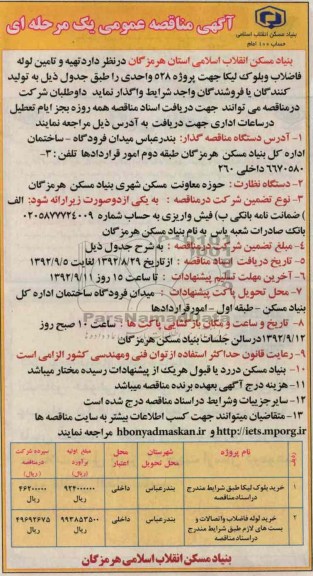 بنیاد مسکن انقلاب اسلامی
حساب ۱۰۰ امام
آگهی مناقصه عمومی یک مرحله ای
بنیاد مسکن انقلاب اسلامی استان هرمزگان درنظر داردتهیه و تامین لوله
فاضلاب وبلوک لیکا جهت پروژه ۵۲۸ واحدی را طبق جدول ذیل به تولید
کنندگان یا فروشندگان واجد شرایط واگذار نماید داوطلبان شرکت
درمناقصه می توانند جهت دریافت اسناد مناقصه همه روزه بجز ایام تعطیل
درساعات اداری جهت دریافت به آدرس ذیل مراجعه نمایند
۱- آدرس دستگاه مناقصه گذار: بندرعباس میدان فرودگاه - ساختمان
اداره کل بنیاد مسکن هرمزگان طبقه دوم امور قراردادها تلفن : ۳-
۶۶۷۰۵۸۰ داخلی ۲۶۰
۲- دستگاه نظارت : حوزه معاونت مسکن شهری بنیاد مسکن هرمزگان
۳- نوع تضمین شرکت درمناقصه : به یکی ازدوصورت زیرارائه شود: الف
) ضمانت نامه بانکی ب) فیش واریزی به حساب شماره ۰۲۰۵۸۷۷۲۴۰۰۹
بانک صادرات شعبه یاس به نام بنیاد مسکن هرمزگان
۴- مبلغ تضمین شرکت درمناقصه : به شرح جدول ذیل
۵- تاریخ دریافت اسناد مناقصه : ازتاریخ ۱۳۹۲/۸/۲۹ لغایت ۱۳۹۲/۹/۵
۶- آخرین مهلت تسلیم پیشنهادات : تا ساعت ۱۵ روز ۱۳۹۲/۹/۱۱
۷- محل تحویل پاکت پیشنهادات : میدان فرودگاه ساختمان اداره کل
بنیاد مسکن - طبقه اول - امورقراردادها
۸- تاریخ و ساعت و مکان بازگشایی پاکت ها : ساعت ۱۰ صبح روز
۱۳۹۲/۹/۱۲ درسالن جلسات بنیاد مسکن هرمزگان
۹- رعایت قانون حداکثر استفاده ازتوان فنی ومهندسی کشور الزامی است
۱۰- بنیاد مسکن دررد یا قبول هریک از پیشنهادات رسیده مختار میباشد
۱۱- هزینه درج آگهی بعهده برنده مناقصه میباشد
۱۲- سایرجزییات وشرایط دراسناد مناقصه درج شده است
۱۳- متقاضیان میتوانند جهت کسب اطلاعات بیشتر به سایت مناقصه ها
http://iets.mporg.ir و hbonyadmaskan.ir مراجعه نمایند
ردیف نام پروژه شهرستان محل تحویل محل اعتبار مبلغ اولیه برآورد (ریال) سپرده شرکت درمناقصه (ریال)
۱ خرید بلوک لیکا طبق شرایط مندرج دراسنادمناقصه بندرعباس داخلی ۹۲۴۰۰۰۰۰۰ ریال ۴۶۲۰۰۰۰۰ ریال
۲ خرید لوله فاضلاب واتصالات و بست های لازم طبق شرایط مندرج دراسناد مناقصه بندرعباس داخلی ۹۹۳۸۵۳۵۰۰ ریال ۴۹۶۹۲۶۷۵ ریال
بنیاد مسکن انقلاب اسلامی هرمزگان